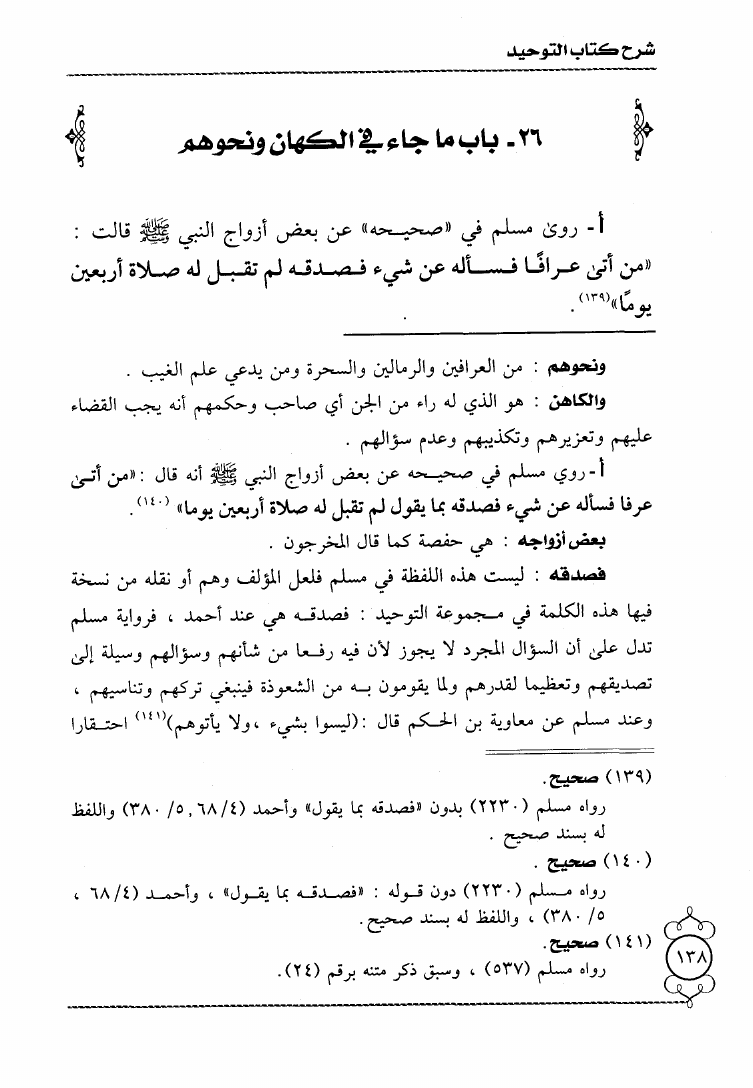 شرح كتاب التوحيد
٢٦ـ باب ما جاء في الكهان ونحوهم
أ- روىٰ مسلم في «صحيـحه» عن بعض أزواج النبي ﷺ قالت :
«من أتىٰ عـرافًـا فـسـأله عن شيء فـصدقـه لم تقبـل له صلاة أربعين
يومًا»(١٣٩).
ونحوهم : من العرافين والرمالين والسحرة ومن يدعي علم الغيب .
والكاهن : هو الذي له راء من الجن أي صاحب وحكمهم أنه يجب القضاء
عليهم وتعزيرهم وتكذيبهم وعدم سؤالهم .
أ-روي مسلم في صحيحه عن بعض أزواج النبي ﷺ أنه قال :«من أتىٰ
عرفا فسأله عن شيء فصدقه بما يقول لم تقبل له صلاة أربعين يوما» (١٤٠).
بعض أزواجه : هي حفصة كما قال المخرجون .
فصدقه : ليست هذه اللفظة في مسلم فلعل المؤلف وهم أو نقله من نسخة
فيها هذه الكلمة في مجموعة التوحيد : فصدقـه هي عند أحمد ، فرواية مسلم
تدل علىٰ أن السؤال المجرد لا يجوز لأن فيه رفعـا من شأنهم وسؤالهم وسيلة إلىٰ
تصديقهم وتعظيما لقدرهم ولما يقومون بـه من الشعوذة فينبغي تركهم وتناسيهم ،
وعند مسلم عن معاوية بن الحـكم قال :(ليسوا بشيء ،ولا يأتوهم)(١٤١) احتقـارا
(١٣٩) صحيح.
رواه مسلم (٢٢٣٠) بدون «فصدقه بما يقول» وأحمد (٦٨/٤, ٥/ ٣٨٠) واللفظ
له بسند صحيح .
(١٤٠) صحيح .
رواه مـسلم (٢٢٣٠) دون قوله : «فصـدقـه بما يقول» ، وأحمـد (٦٨/٤ ،
٥/ ٣٨٠) ، واللفظ له بسند صحيح.
(١٤١) صحيح.
رواه مسلم (٥٣٧) ، وسبق ذكر متنه برقم (٢٤).
١٣٨